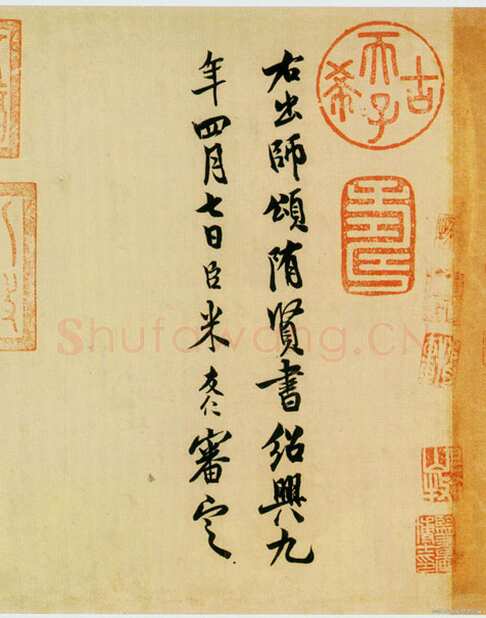 右出師頌隋賢書紹興九
年四月七日臣米友仁審定
古希天子
壽
Shufawang.CN